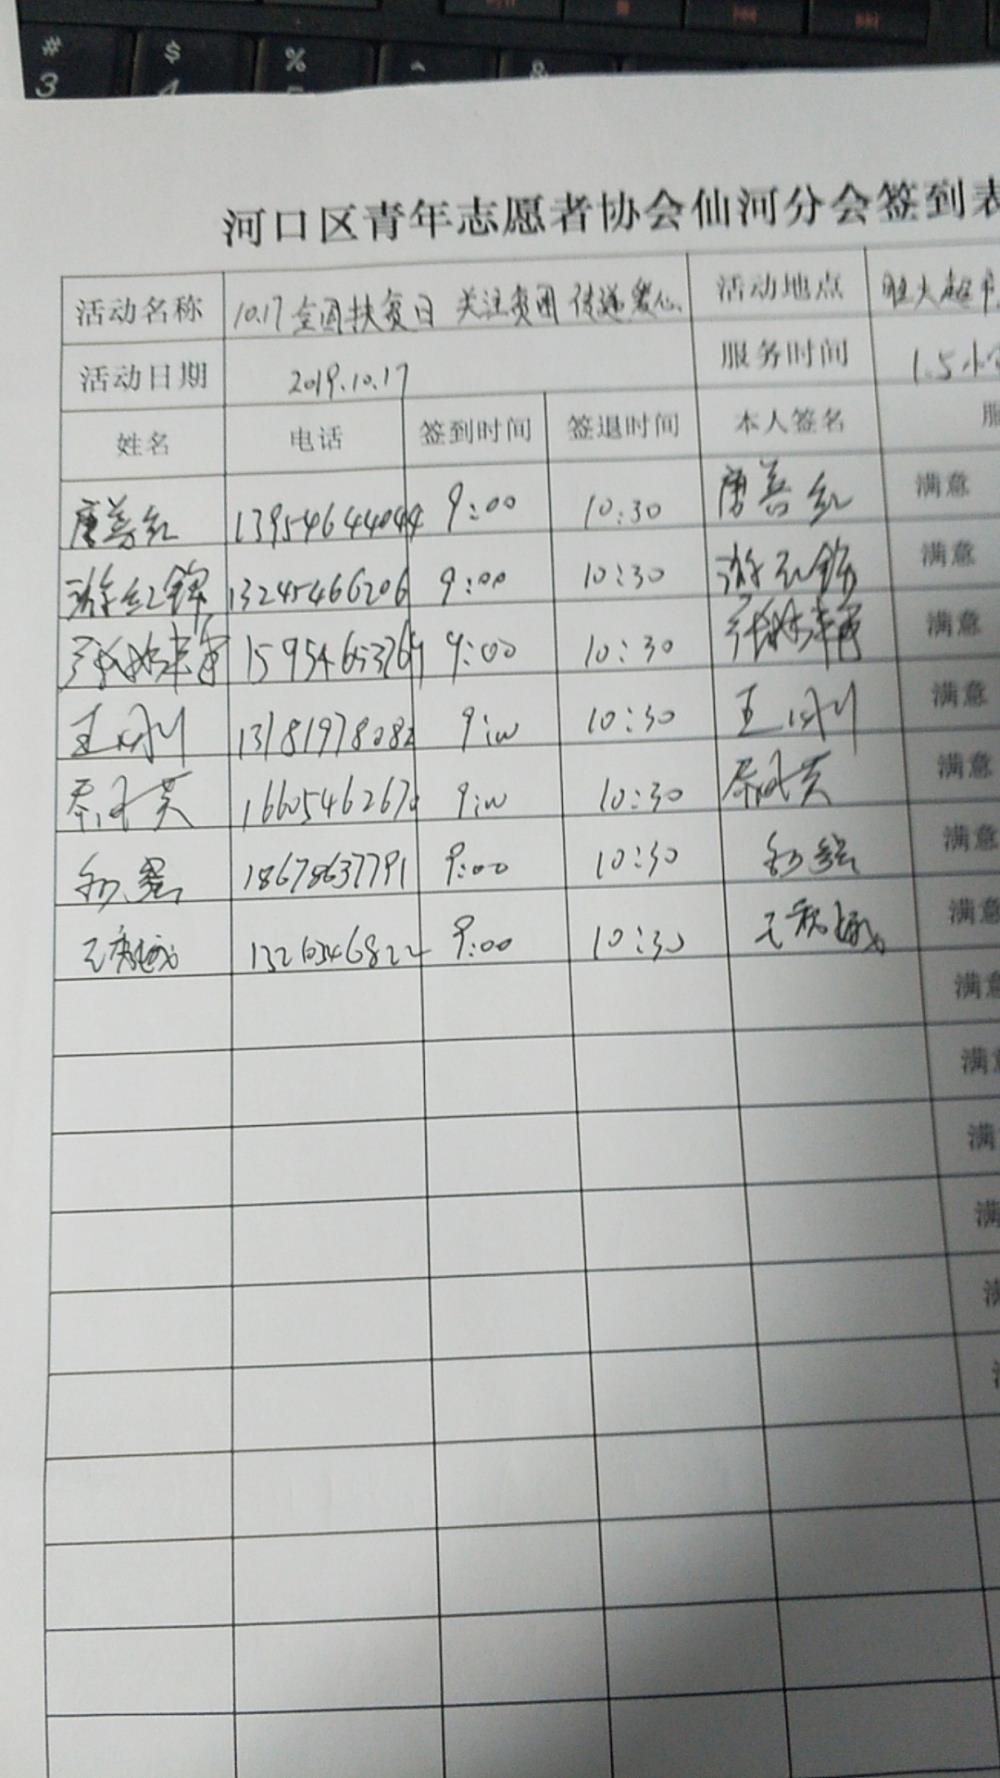 # $ % ^ &
3 4
河口区青年志愿者协会仙河分会签到表
活动名称 10.17全国扶贫日 关注贫困 传递爱心 活动地点
活动日期 2019.10.17 服务时间 1.5小
姓名 电话 签到时间 签退时间 本人签名
唐善红 13954644044 9:00 10:30 唐善红 满意
游红锦 13245466206 9:00 10:30 游红锦 满意
15954653764 9:00 10:30 满意
王 13181978082 9:00 10:30 王 满意
16605462670 9:00 10:30 满意
18678637791 9:00 10:30 满意
13210546822 9:00 10:30 满意
满意
满
满
满
满